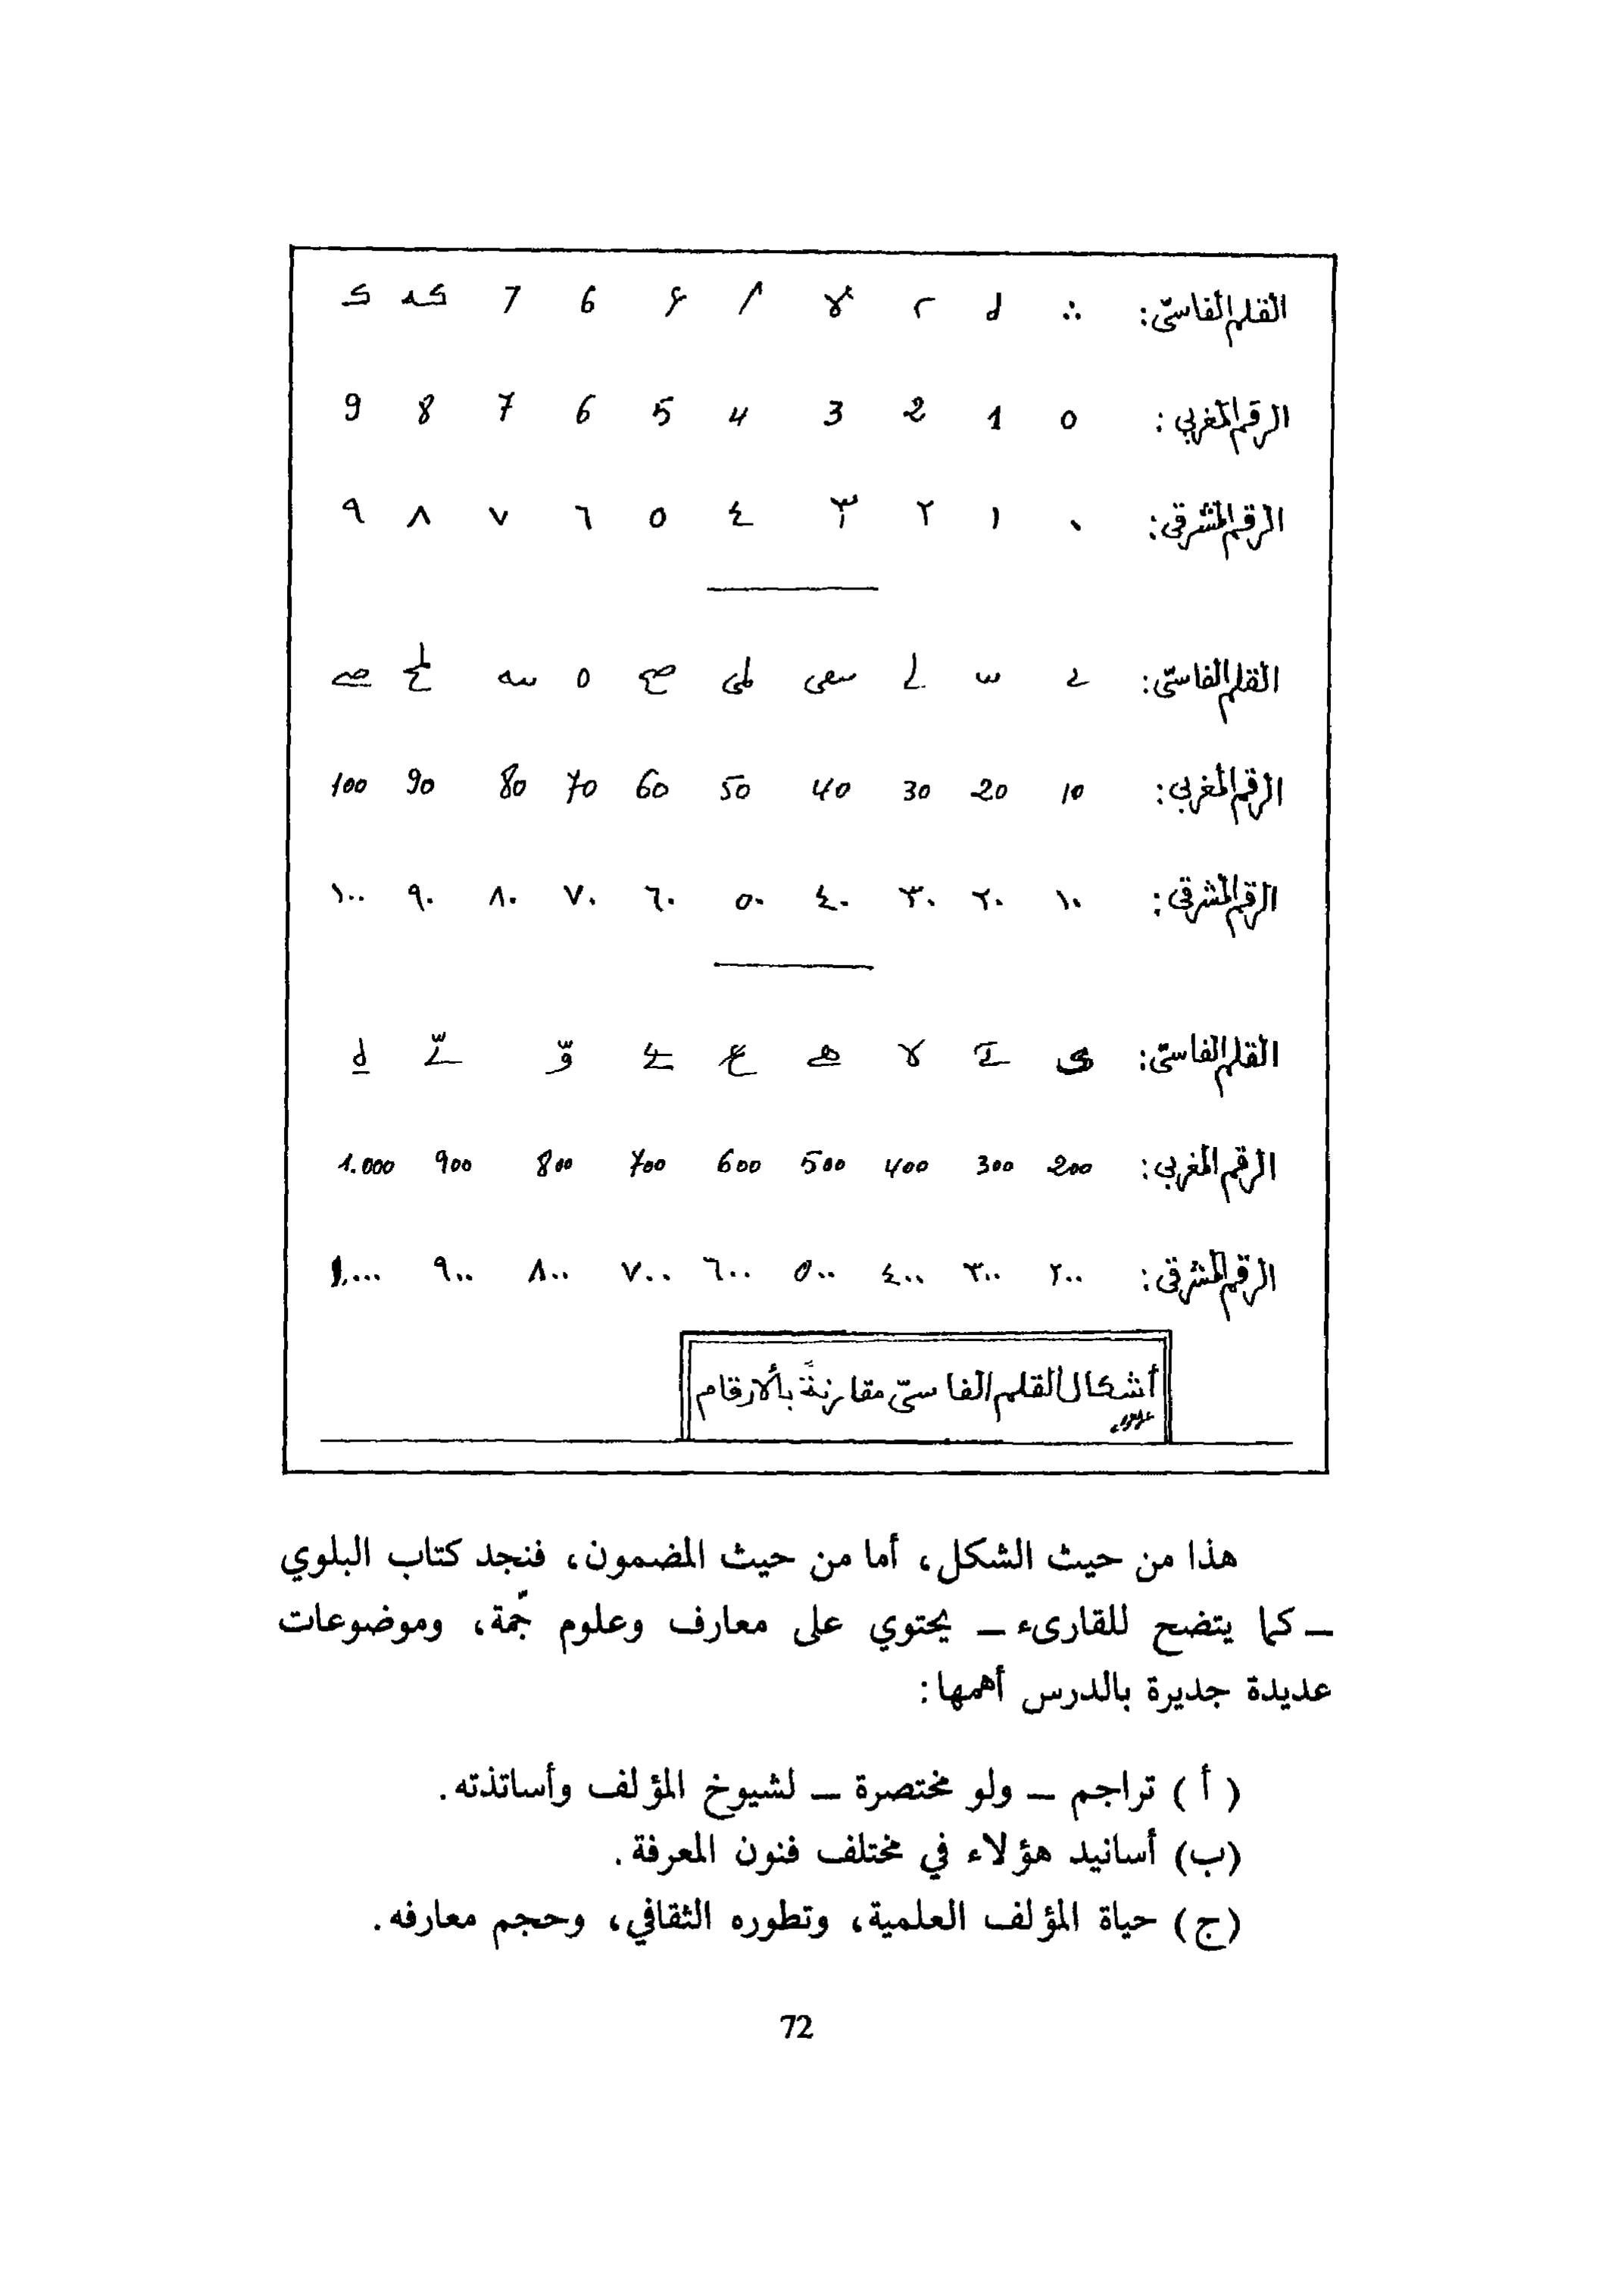 القلم الفاسيّ:
الرقم المغربي: 0 1 2 3 4 5 6 7 8 9
الرقم المشرقي: ٠ ١ ٢ ٣ ٤ ٥ ٦ ٧ ٨ ٩
القلم الفاسيّ:
الرقم المغربي: 10 20 30 40 50 60 70 80 90 100
الرقم المشرقي: ١٠ ٢٠ ٣٠ ٤٠ ٥٠ ٦٠ ٧٠ ٨٠ ٩٠ ١٠٠
القلم الفاسيّ:
الرقم المغربي: 200 300 400 500 600 700 800 900 1.000
الرقم المشرقي: ٢٠٠ ٣٠٠ ٤٠٠ ٥٠٠ ٦٠٠ ٧٠٠ ٨٠٠ ٩٠٠ ١.٠٠٠
أشكال القلم الفاسيّ مقارنةً بالأرقام
هذا من حيث الشكل، أما من حيث المضمون، فنجد كتاب البلوي
ـ كما يتضح للقارىء ـ يحتوي على معارف وعلوم جّمة، وموضوعات
عديدة جديرة بالدرس أهمها:
( أ ) تراجم ـ ولو مختصرة ـ لشيوخ المؤلف وأساتذته.
(ب) أسانيد هؤلاء في مختلف فنون المعرفة.
(ج) حياة المؤلف العلمية، وتطوره الثقافي، وحجم معارفه.
72